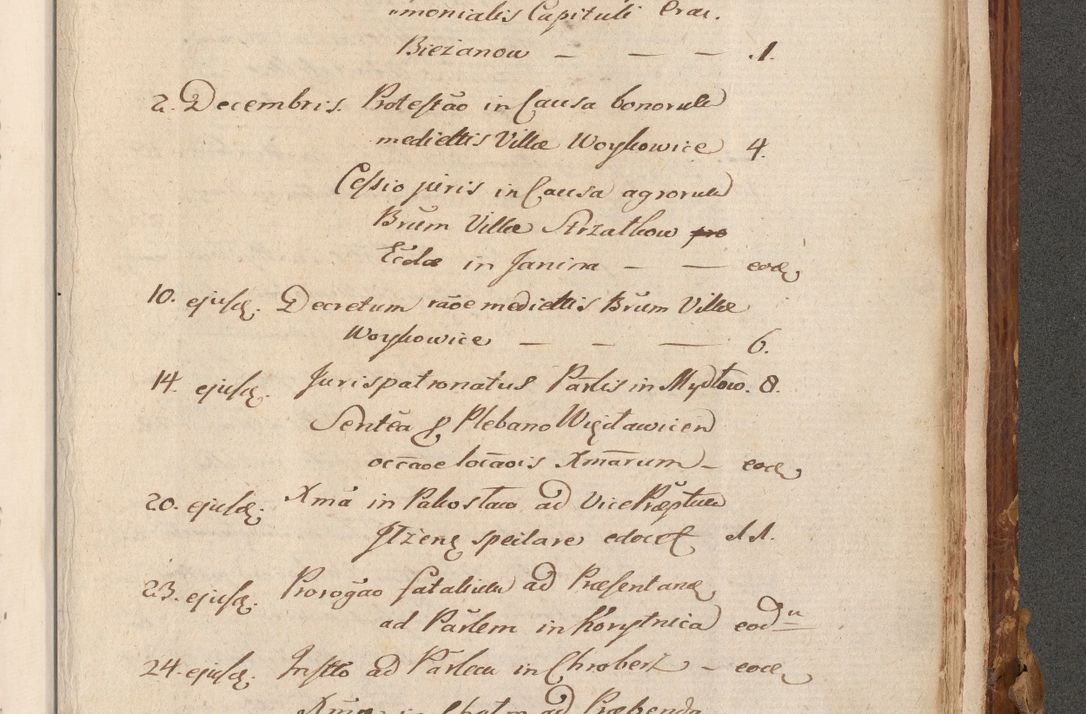 monialis Capituli Crac.
Bieżanow – – – 1.
2. Decembris. Protestão in Causa bonorum
mediettis Villæ Woykowice 4.
Cessio juris in Causa agrorum
Brŭm Villæ Strzałkow pro
Eccłæ in Janina – – eodę
10. ejusdę. Decretum rãoe mediettis Brŭm Villæ
Woykowice – – – 6.
14. ejusdę. Jurispatronatus Parlis in Mydłow. 8.
Sentĕa Plebano Więcławicen
occãoe locãois Xmãrum – eodę
20. ejusdę. Xmã in Pakosław ad VicePræptum
Itzenę spectare edocet 11.
23. ejusdę. Prorogão fatalium ad Præsentanę
ad Parlem in Korytnica eod
24. ejusdę. Instto ad Parlem in Chroberz – eodę
Xmã in Chełm ad Præbenda